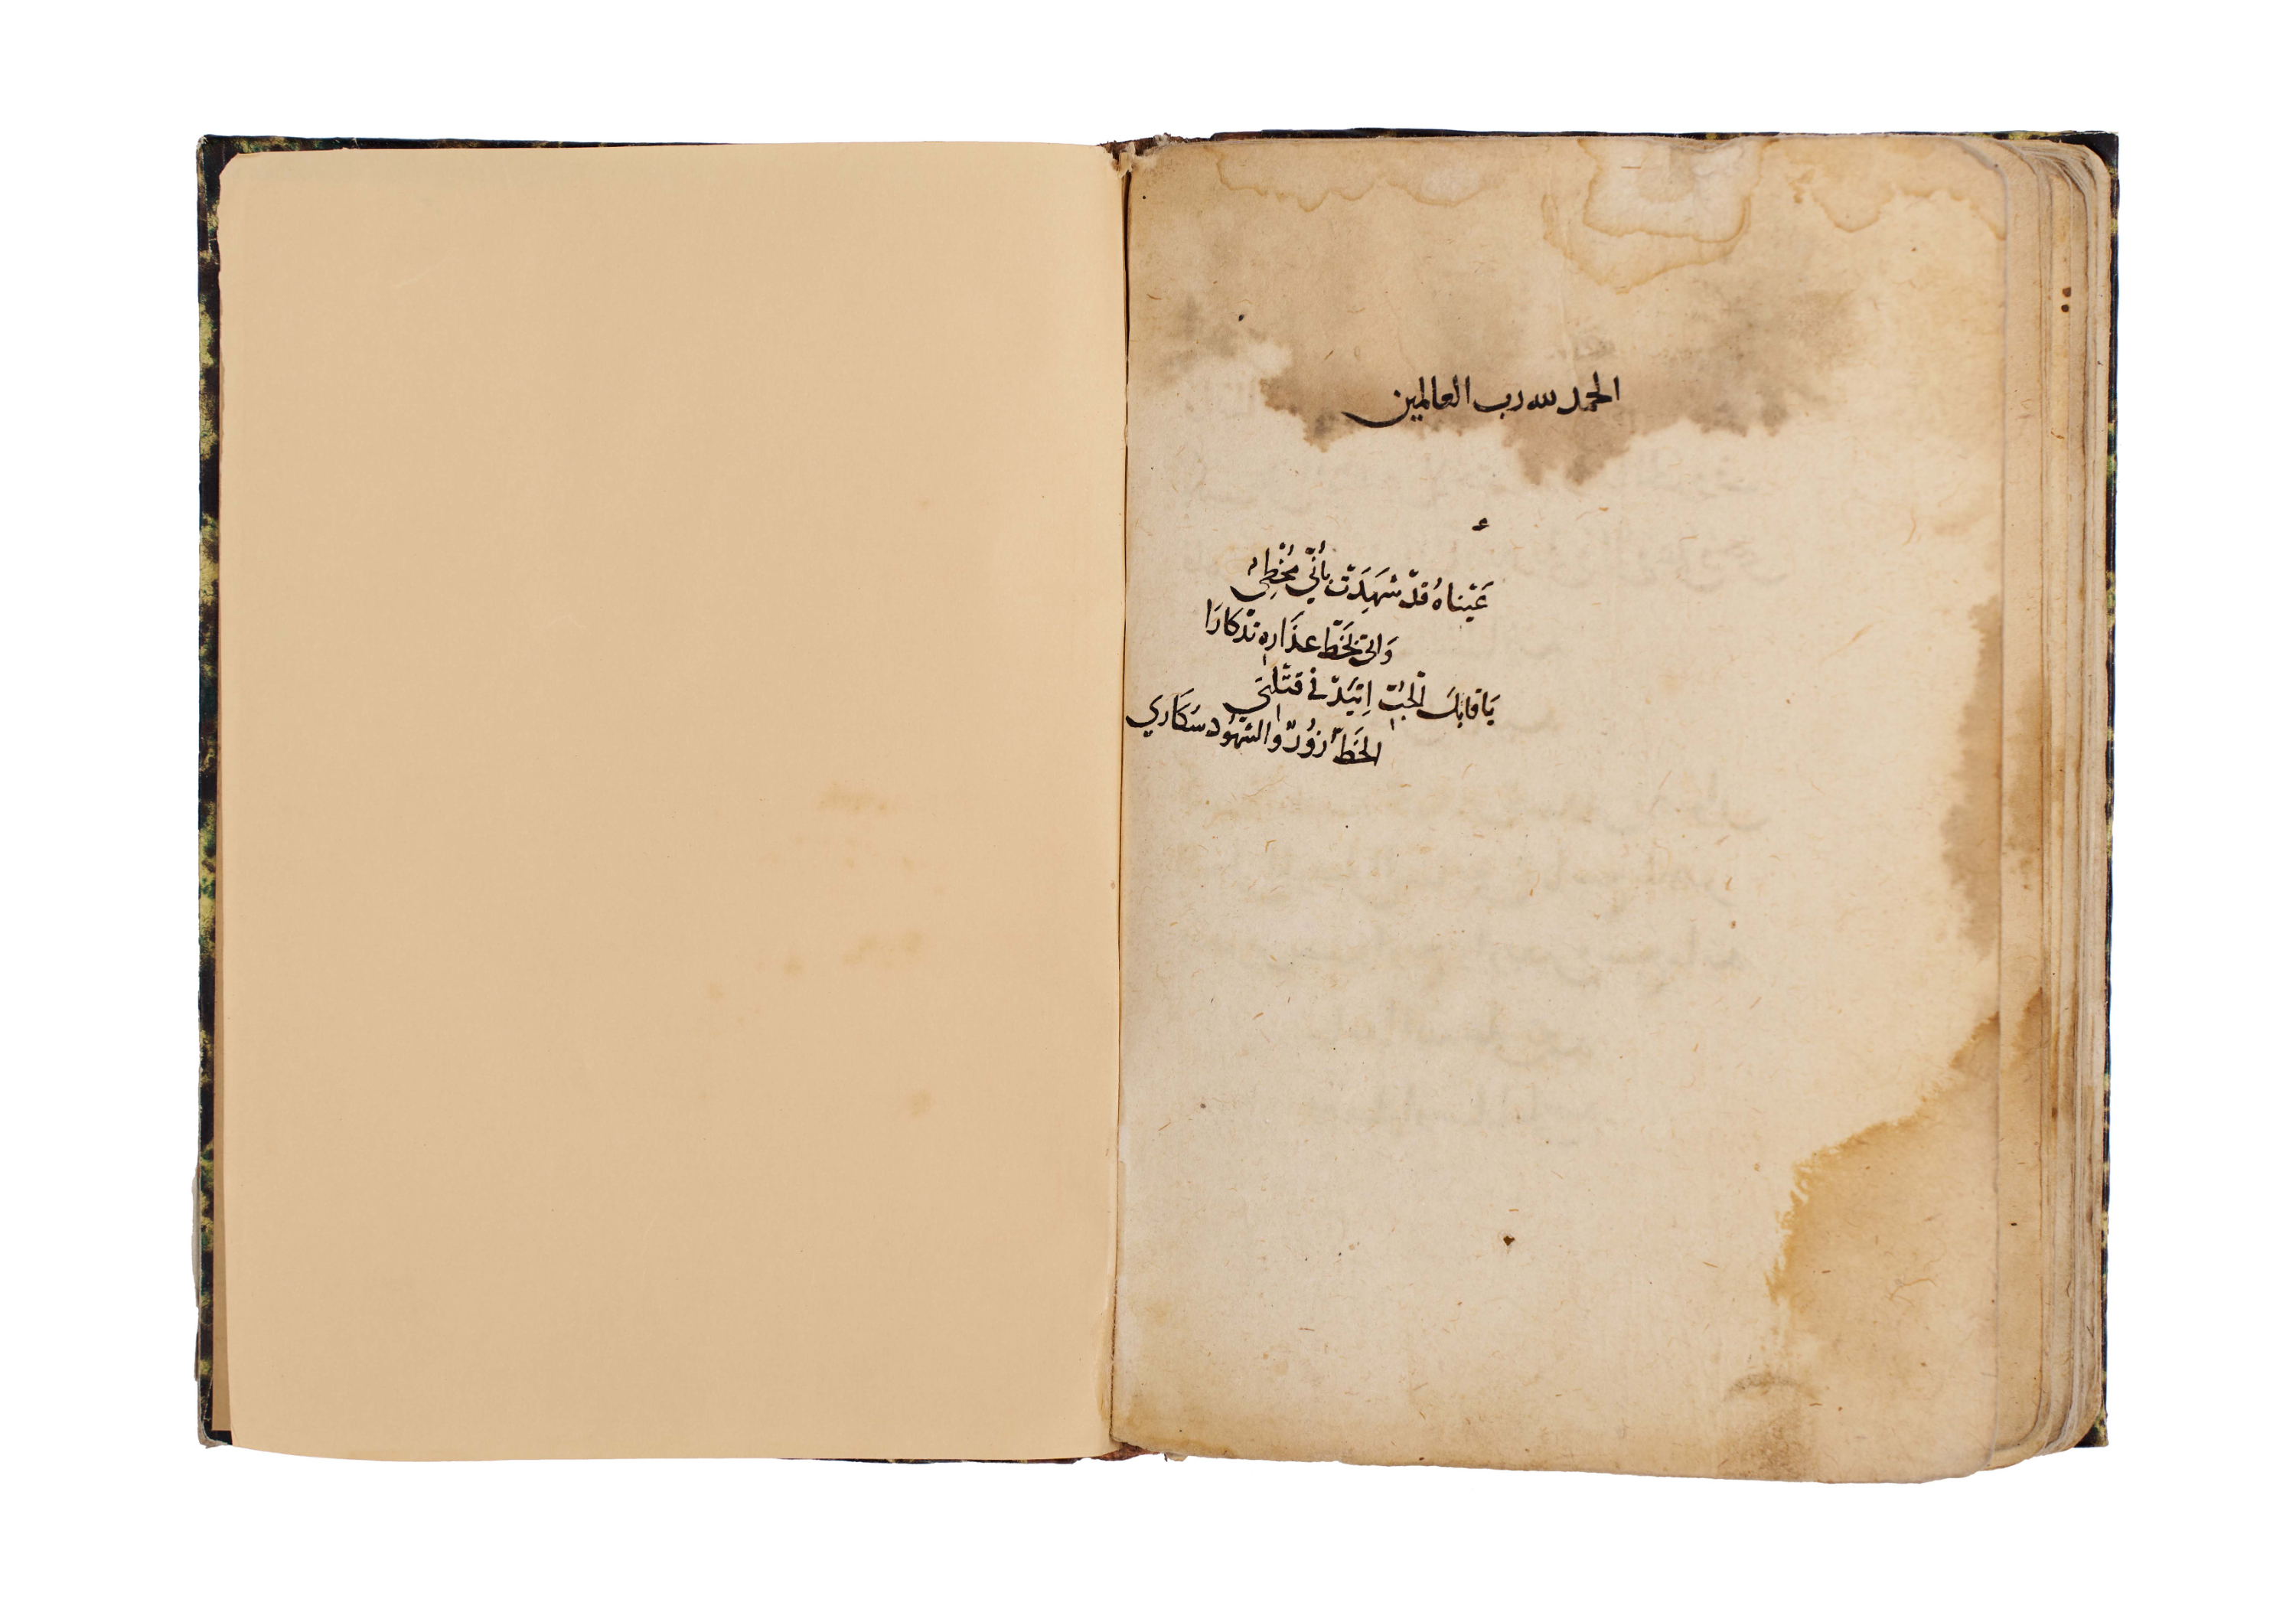 الحمد لله رب العالمين
عَيْناهُ قدْ شَهِدَتْ بأنّي مُخْطِئ
وَاتى بخَطّ عذَارِه تذكارَا
يَا قابل الحُبّ اِتئدْ في قتلتي
الخَطّ زوُرٌ والشهُود سَكَاري